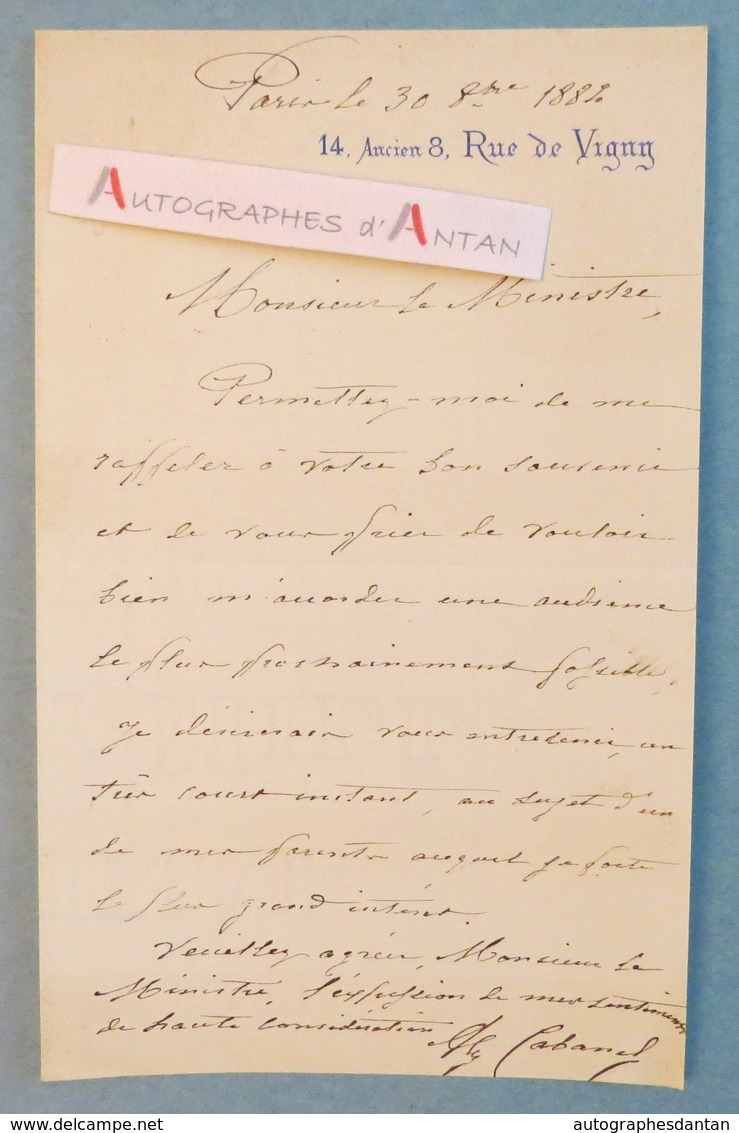 Paris le 30 8bre 1882
14, Ancien 8, Rue de Vigny
AUTOGRAPHES d'ANTAN
Monsieur le Ministre,
Permettez-moi de me
rappeler à votre bon souvenir
et de vous prier de vouloir
bien m'accorder une audience
le plus prochainement possible,
je désirerais vous entretenir, un
très court instant, au sujet d'un
de mes parents auquel je porte
le plus grand intérêt.
Veuillez agréer, Monsieur le
Ministre, l'expression de mes sentiments
de haute considération
Alex Cabanel
autographesdantan